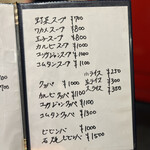 野菜スープ ¥700
ワカメスープ ¥800
玉子スープ ¥800
カルビスープ ¥1000
ユッケジャンスープ ¥1000
コムタンスープ ¥1100
大ライス ¥330
中ライス ¥300
小ライス ¥250
クッパ ¥1000
カルビクッパ ¥1100
ユッケジャンクッパ ¥1100
コムタンクッパ ¥1300
ビビンバ ¥1000
石焼ビビンバ ¥1500